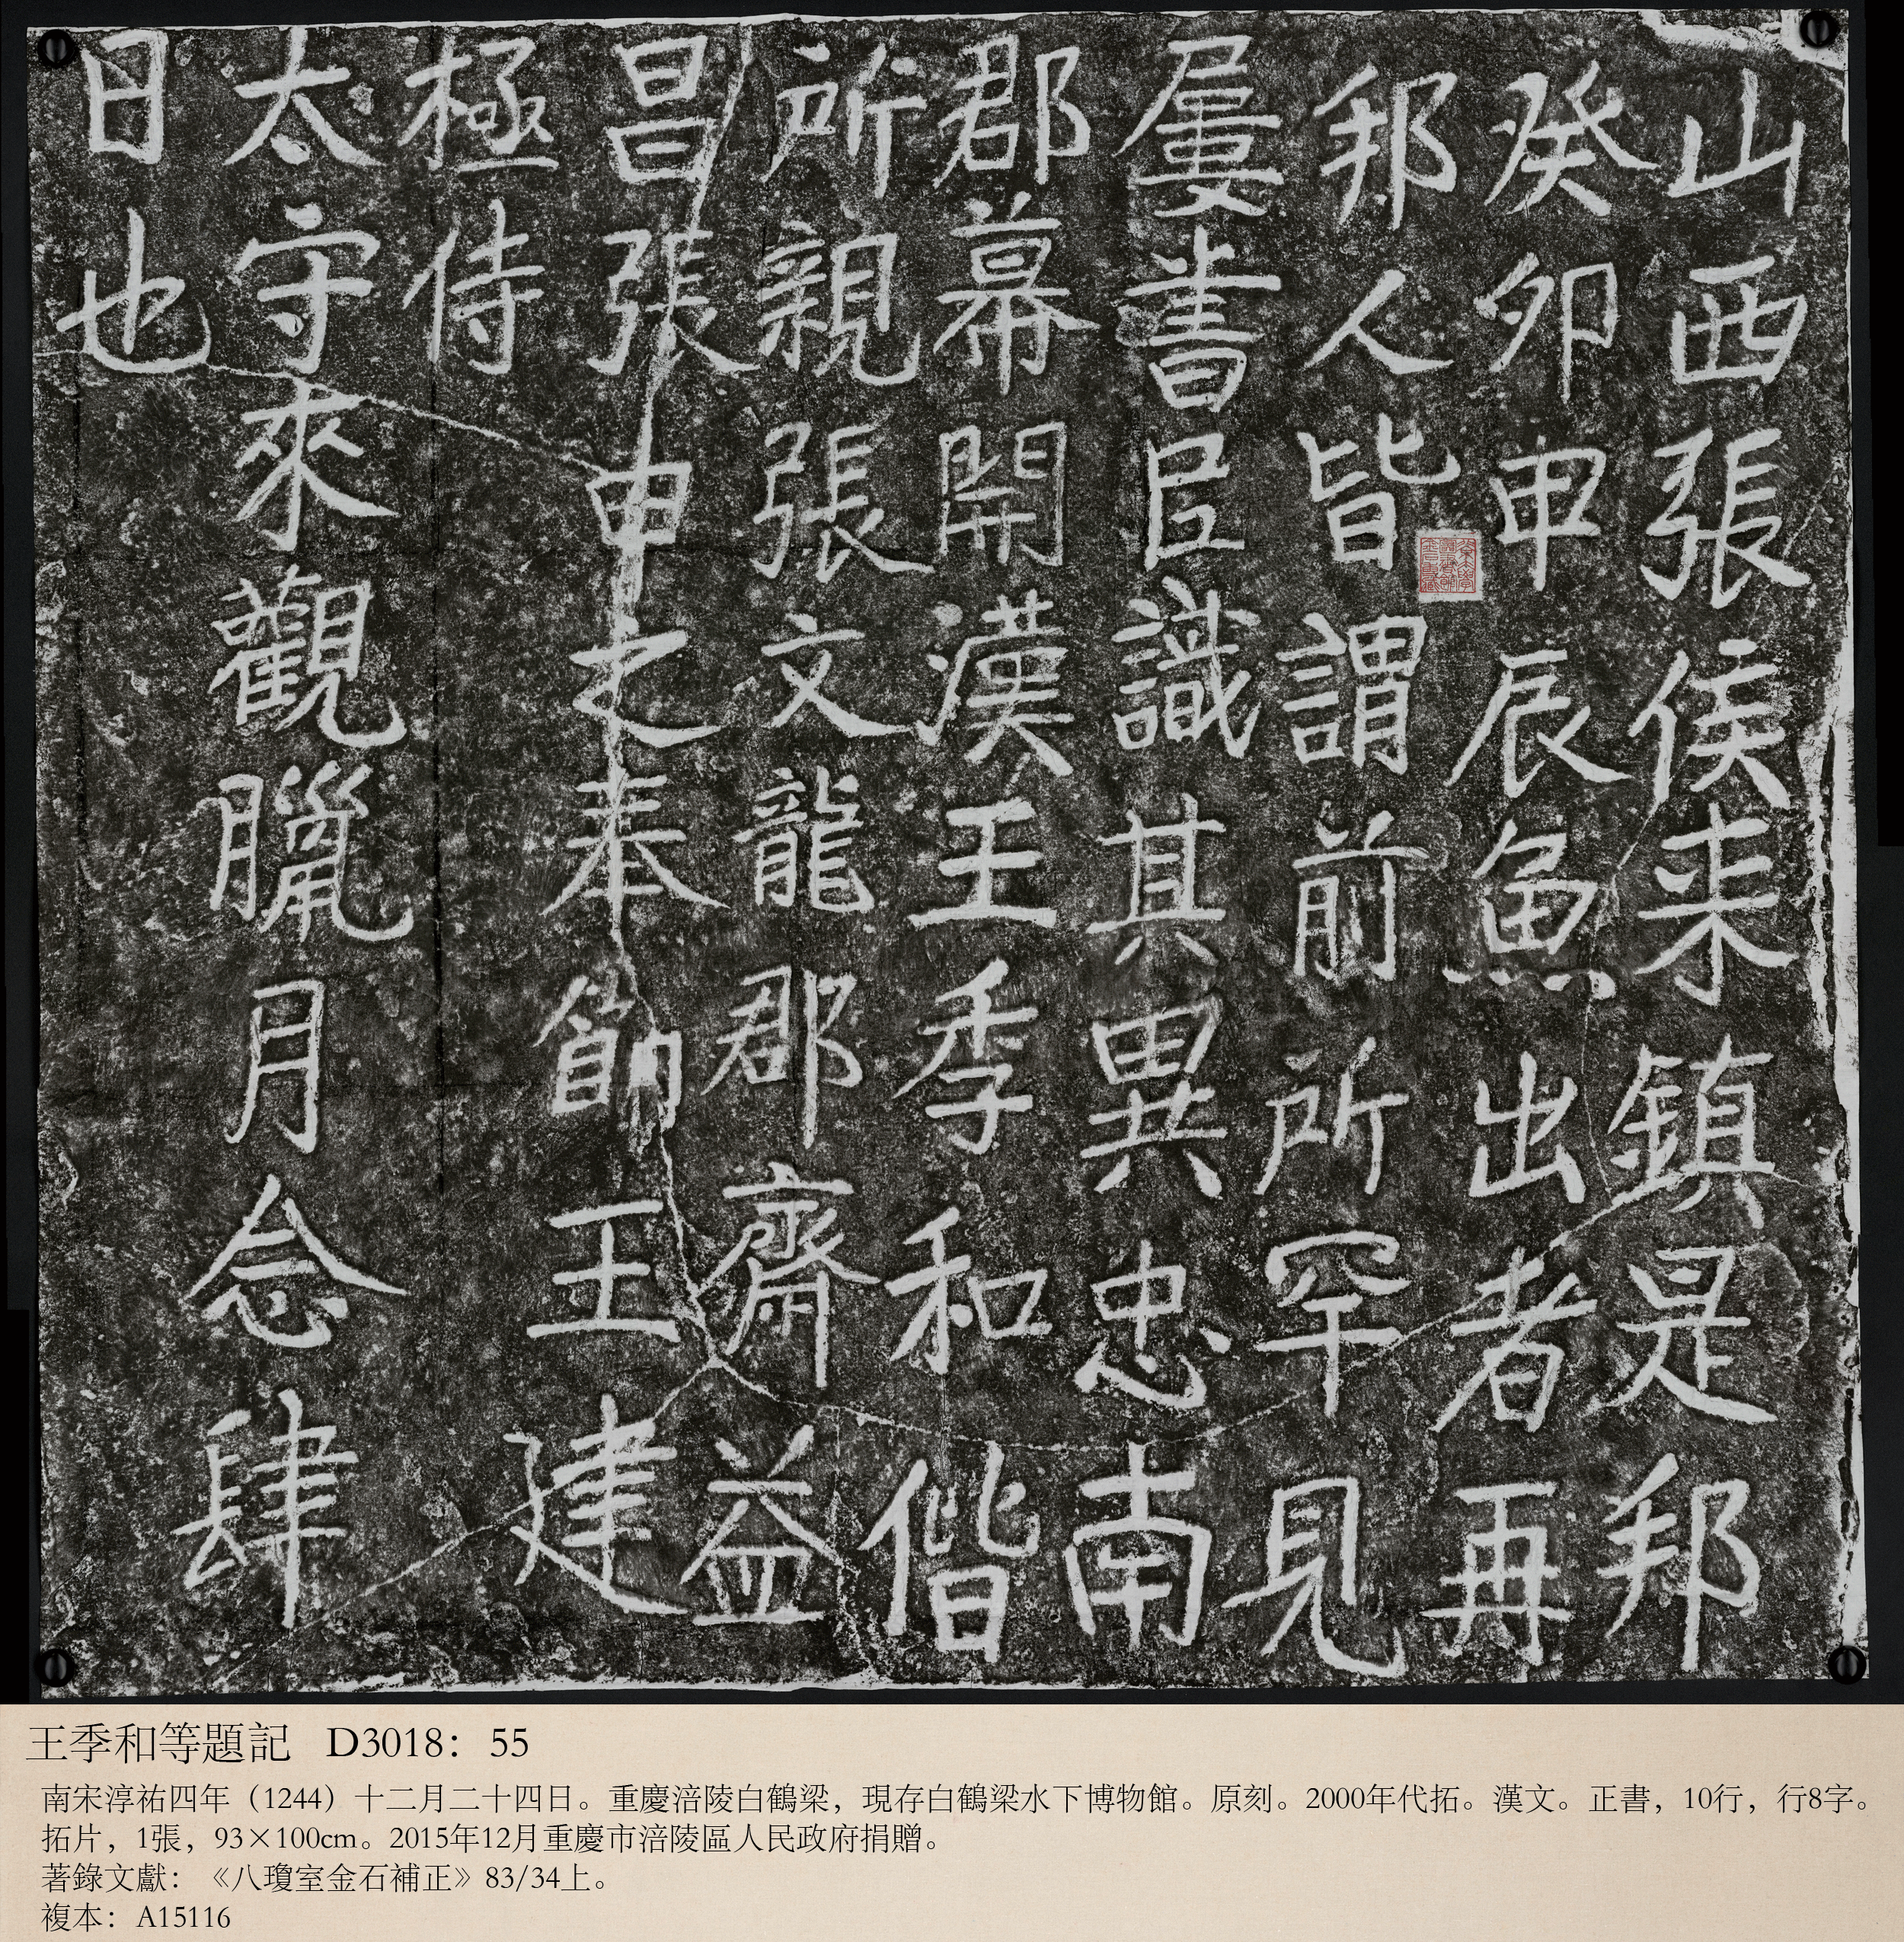 山西張侯来鎮是邦
癸卯甲辰魚出者再
邦人皆謂前所罕見
屢書㠯識其異忠南
郡幕開漢王季和偕
所親張文龍郡齋益
昌張申之奉節王建
極侍
太守來觀臘月念肆
日也
王季和等題記 D3018：55
南宋淳祐四年（1244）十二月二十四日。重慶涪陵白鶴梁，現存白鶴梁水下博物館。原刻。2000年代拓。漢文。正書，10行，行8字。
拓片，1張，93×100cm。2015年12月重慶市涪陵區人民政府捐贈。
著錄文獻：《八瓊室金石補正》83/34上。
複本：A15116